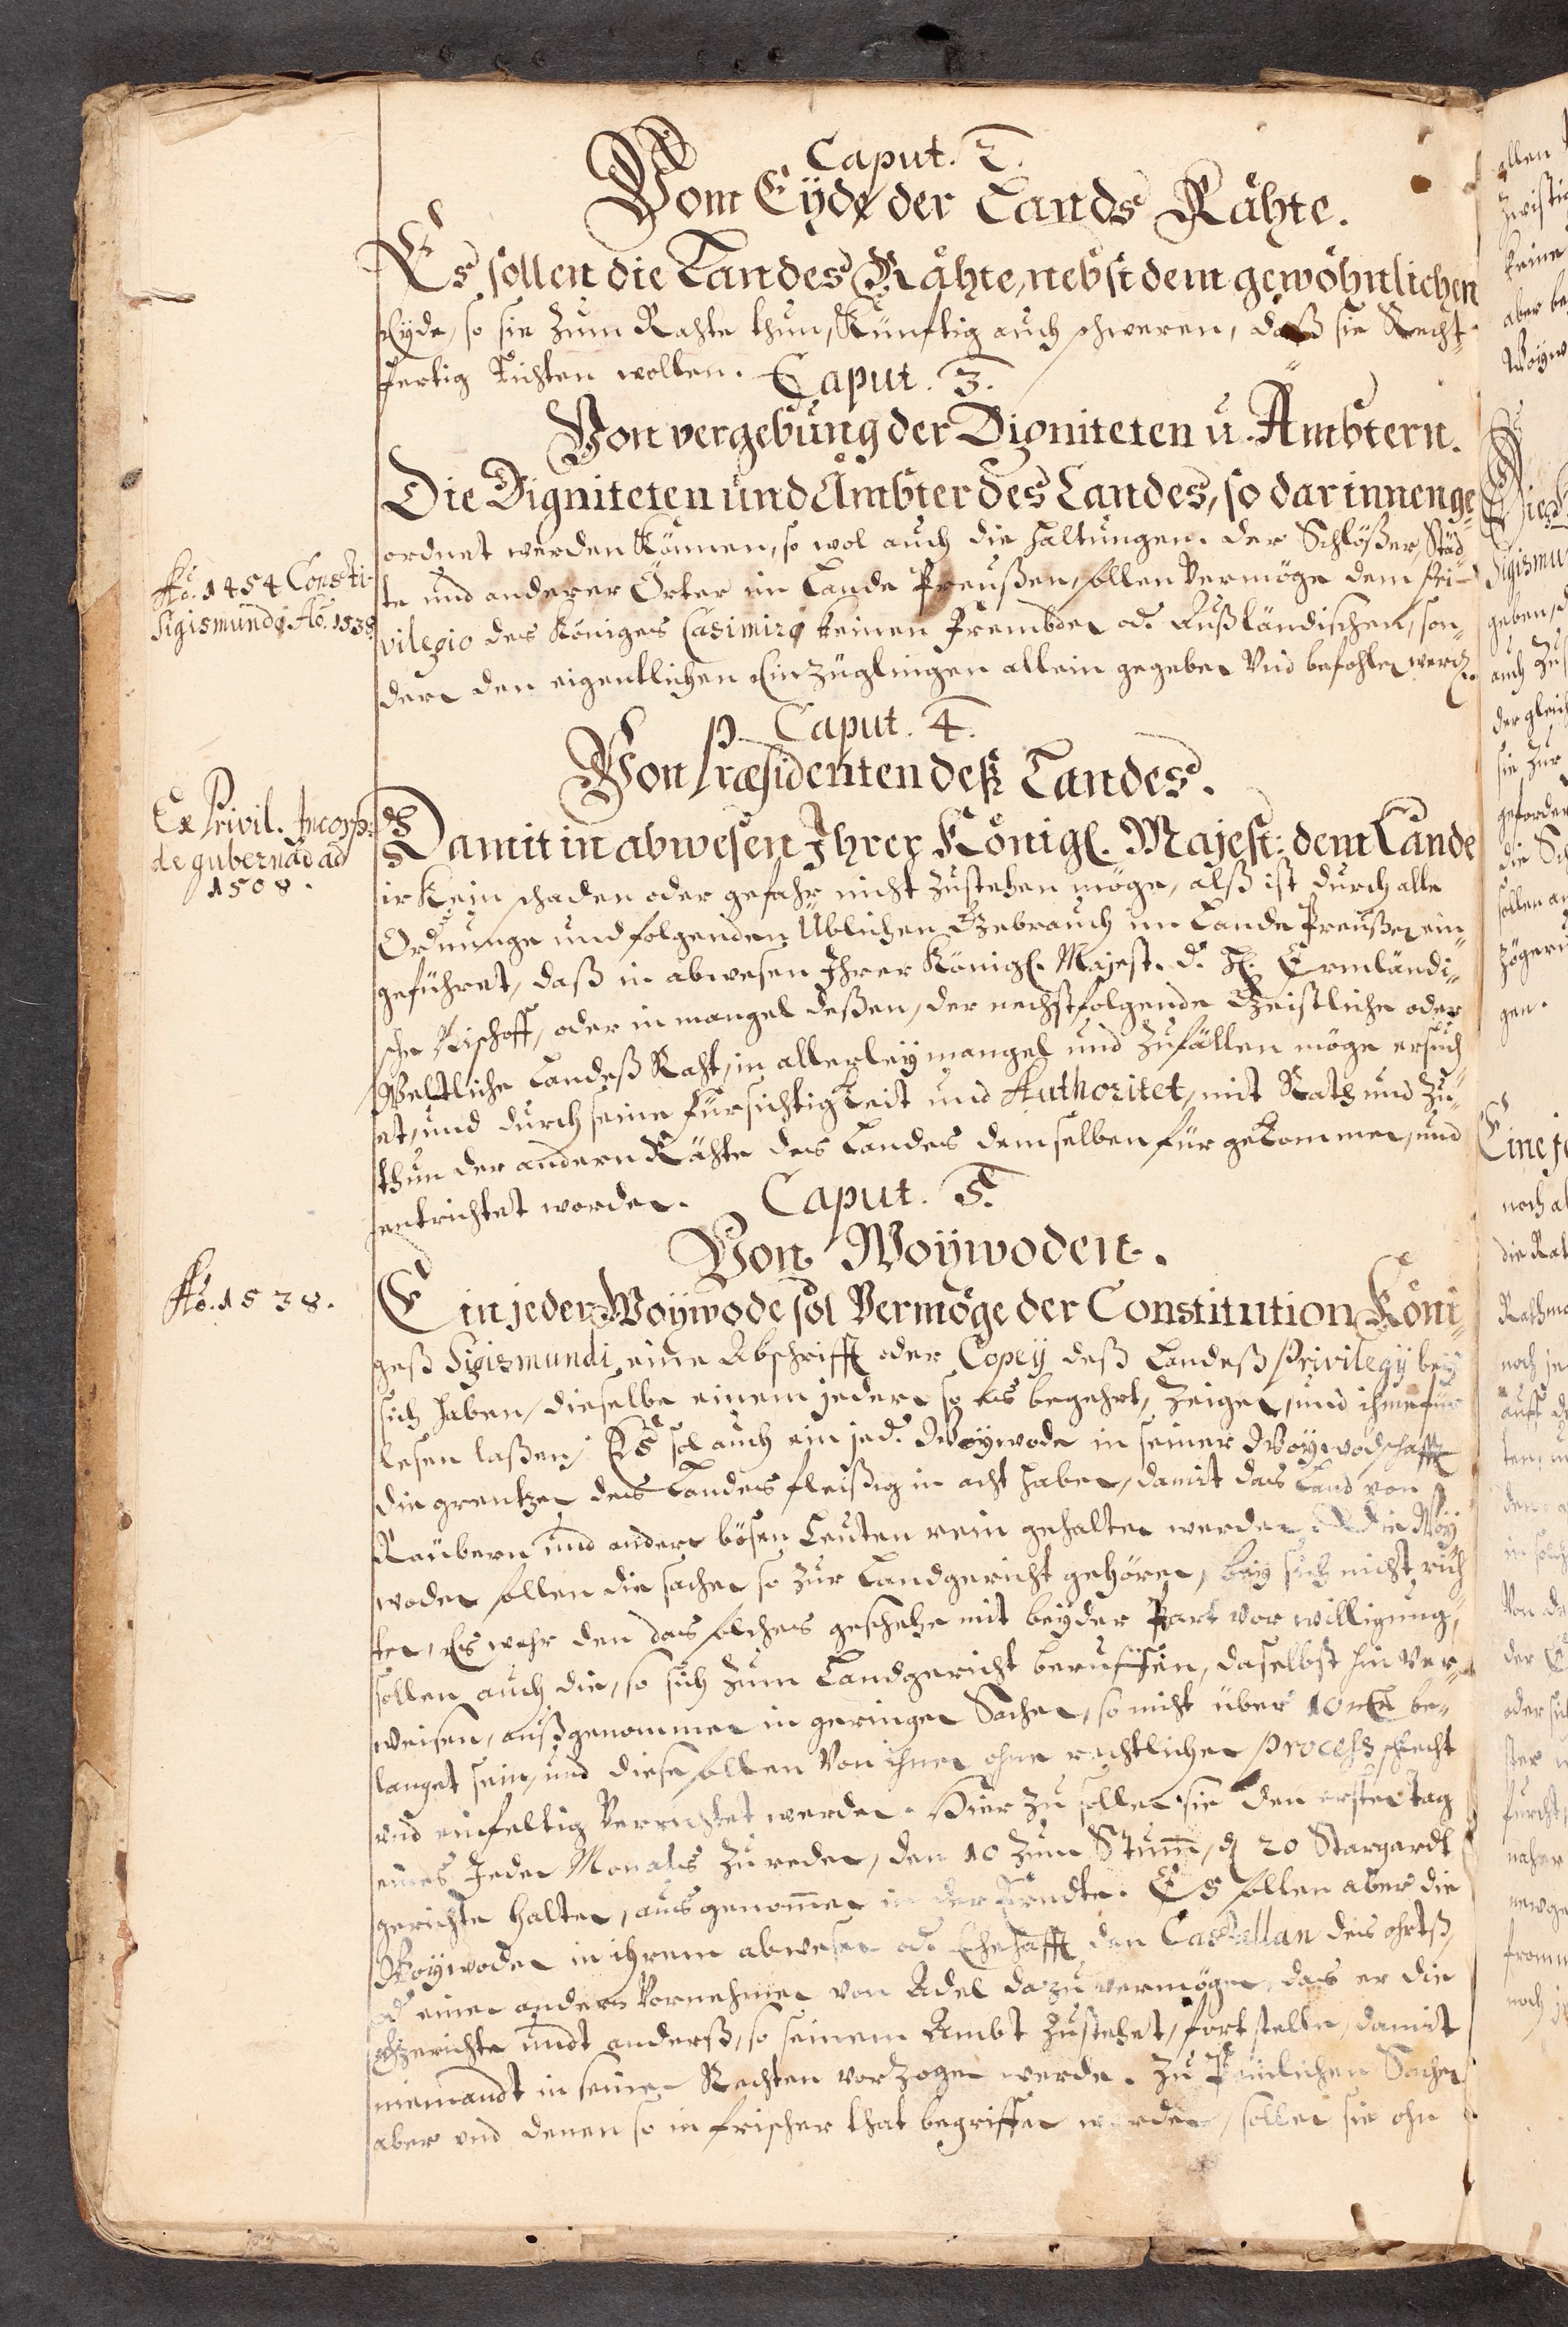 Caput. 2.
Vom Eyde der Lands Rähte.
Es sollen die Landes Rähte, nebst dem gewöhnlichen
Eyde, so sie zum Rahte thun, Künftig auch schweren, daß sie Recht-
fertig Richten wollen. Caput. 3.
Von vergebung der Digniteten u. Ämbtern.
Die Digniteten und Ämbter des Landes, so darinnen ge-
ordnet werden Können, so wol auch die haltungen der Schlößer, Städ-
Ao. 1454 Consti-
te und anderer Örter im Lande Preußen, sollen Vermöge dem Pri-
Sigismundi Ao. 1538
vilegio des Königes Casimiri keinen Frembden od. Außländischen, son-
dern den eigentlichen Einzüglingen allein gegeben Und befohlen werd.
Caput. 4.
Von Præsidenten deß Landes.
Ex Privil. Incorp:
Damit in abwesen Ihrer Königl. Majest: dem Lande
de gubernad ad
1508.
ir Kein schaden oder gefahr nicht zustehen möge, alß ist durch alle
Ordnunge und folgenden Üblichen Gebrauch im Lande Preußen ein-
geführet, daß in abwesen Ihrer Königl. Majest. d. H. Ermländi-
sche Bischoff, oder in mangel deßen, der nechstfolgende Geistliche oder
Weltliche Landeß Raht, in allerley mangel und Zufällen möge ersuch
et, und durch seine Fürsichtigkeit und Authoritet, mit Rath und Zu-
thun der andern Rähte des Landes demselben für gekommen, und
entrichtet werden. Caput. 5.
Von Woywoden.
Ao. 1538.
Ein jeder Woywode sol Vermöge der Constitution Köni-
geß Sigismundi, eine Abschrifft oder Copey deß Landeß Privilegij bey
sich haben, dieselbe einem jedern so es begehrt, zeigen, und ihme für
lesen laßen, Es sol auch ein jed. Woywode in seiner Woywodschafft
die grentzen des Landes fleißig in acht haben, damit das Land von
Räubern und andern bösen Leuten rein gehalten werden. Die Woy
woden sollen die sachen so zur Landgericht gehören, bey sich nicht rich
ten, Es wehr den das solches geschehe mit beyder Part vor willigung,
sollen auch die, so sich zum Landgericht beruffen, daselbst hin Ver-
weisen, außgenommen in geringen Sachen, so nicht über 10 be-
langet sein, und diese sollen Von ihnen ohne rechtlichen process schlecht
und einfeltig Verrichtet werden. Hier zu sollen sie den ersten tag
eines Jeden Monats zu reden, den 10 zum Stum, d 20 Stargardt
gerichte halten, ausgenomen in der Erndte. Es sollen aber die
Woywoden in ihrem abwesen od. Ehehafft den Castellan des ohrtß,
od einen andern Vornehmen von Adel dazu vermögen, das er die
Gerichte undt anderß, so seinem Ambt zustehet, fort stelle, damit
niemandt in seinen Rechten vorzogen werde. Zu Peinlichen Sachen
aber und denen so in frischer that begriffen werden, sollen sie ohn